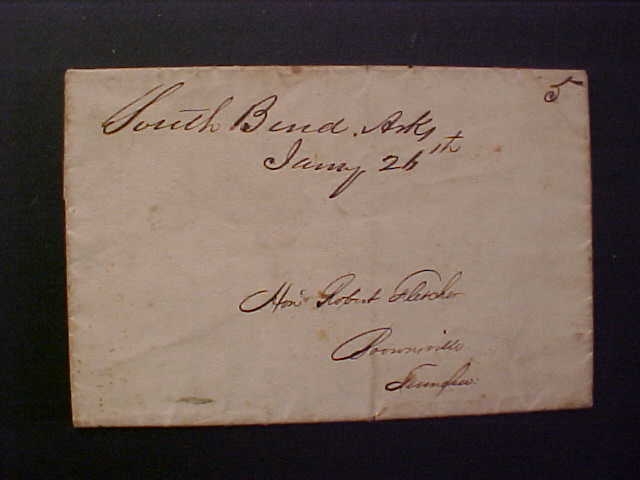 5
South Bend. Arks
Jany 26th
Hon. Robert Fletcher
Brownsville
Tennessee